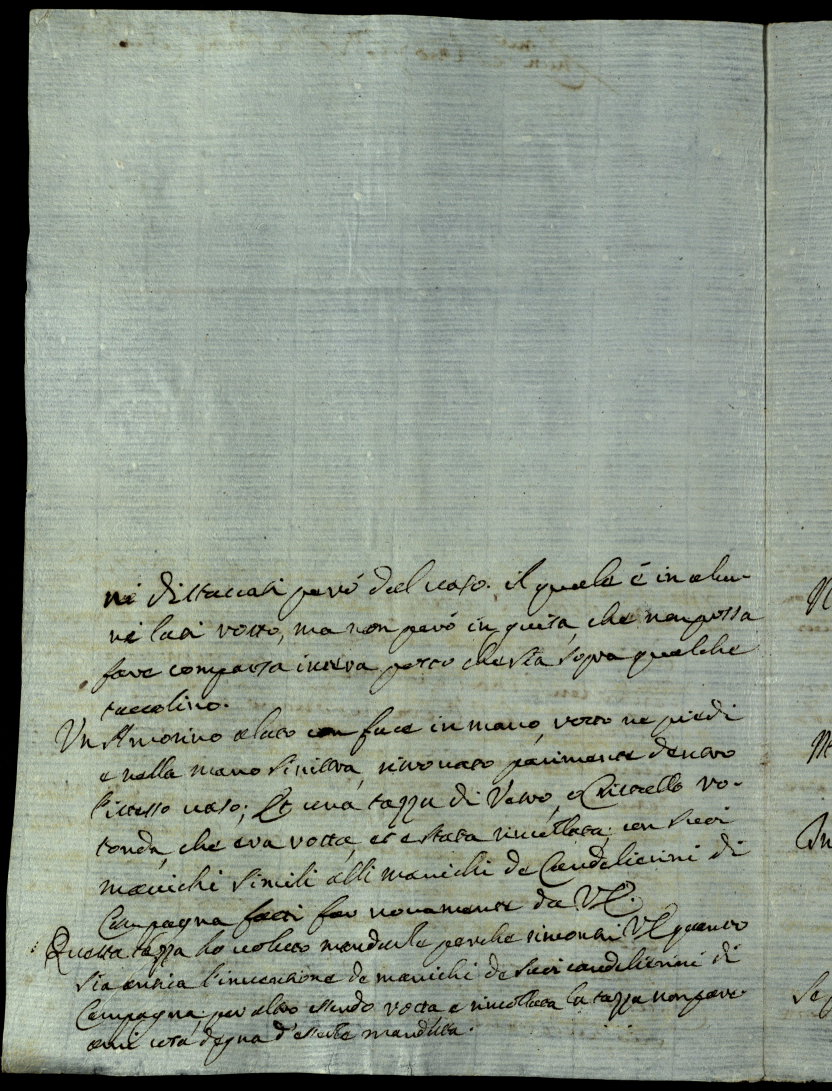 ni distaccati però dal vaso. il quale è in alcu-
ni lati rotto, ma non però in guisa, che non possa
fare comparsa intera posto che sia sopra qualche
taccolino.
Un Amorino alato con face in mano, rotto ne piedi
e nella mano sinistra, ritrovato parimente dentro
l'istesso vaso; Et una tazza di Vetro, o Cristallo ro-
tonda, che era rotta, et è stata rincollata; con suoi
manichi simili alli manichi de Candelierini di
Campagna fatti far novamente da VS.
Questa tazza ho voluto mandarla perche rincontri VS quanto
sia antica l'inventione de manichi de suoi candelierini di
Campagna, per altro essendo rotta e rincollata la tazza non pare-
ami cosa degna d'essere mandata.